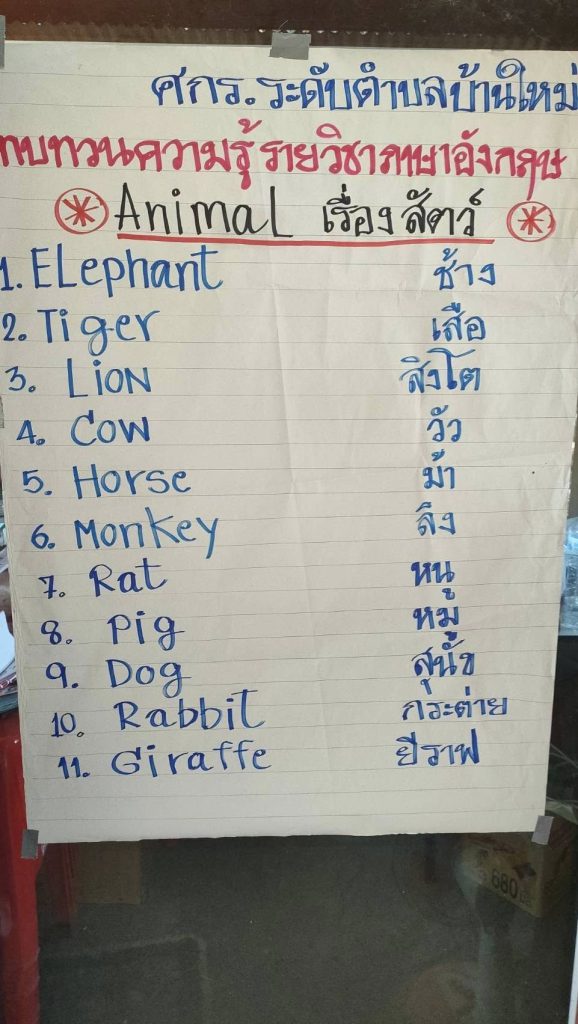 ศกร.ระดับตำบลบ้านใหม่
ทบทวนความรู้ รายวิชาภาษาอังกฤษ
Animal เรื่องสัตว์
1. Elephant ช้าง
2. Tiger เสือ
3. Lion สิงโต
4. Cow วัว
5. Horse ม้า
6. Monkey ลิง
7. Rat หนู
8. Pig หมู
9. Dog สุนัข
10. Rabbit กระต่าย
11. Giraffe ยีราฟ
680